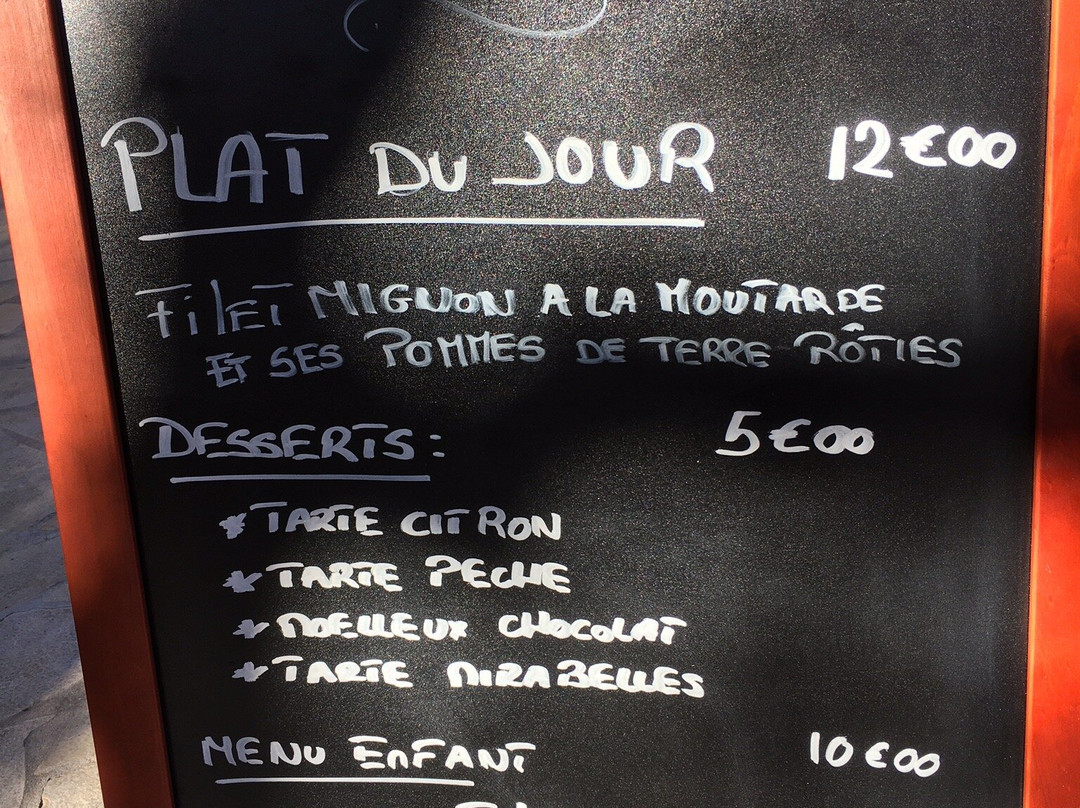 PLAT DU JOUR 12€00
FiLET MIGNON A LA MOUTARDE
ET SES POMMES DE TERRE RÔTIES
DESSERTS: 5€00
* TARTE CITRON
* TARTE PECHE
* MOELLEUX CHOCOLAT
* TARTE MIRABELLES
MENU ENFANT 10€00